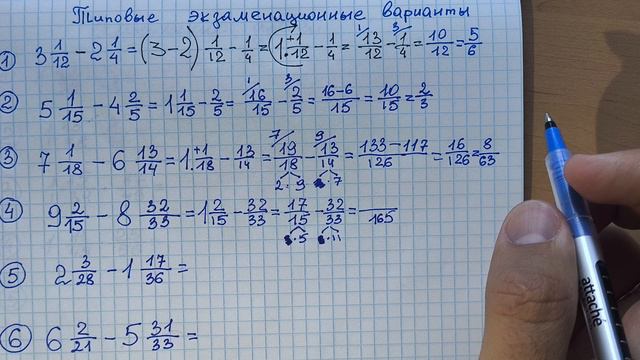 Типовые экзаменационные варианты
① 3 1/12 − 2 1/4 = (3−2) 1/12 − 1/4 = 1 1/12 − 1/4 = 13/12 − 1/4 = 10/12 = 5/6
② 5 1/15 − 4 2/5 = 1 1/15 − 2/5 = 16/15 − 2/5 = 16−6/15 = 10/15 = 2/3
③ 7 1/18 − 6 13/14 = 1 1/18 − 13/14 = 19/18 − 13/14 = 133−117/126 = 16/126 = 8/63
2·9 ·7
④ 9 2/15 − 8 32/33 = 1 2/15 − 32/33 = 17/15 − 32/33 = /165
·5 ·11
⑤ 2 3/28 − 1 17/36 =
⑥ 6 2/21 − 5 31/33 =
attaché